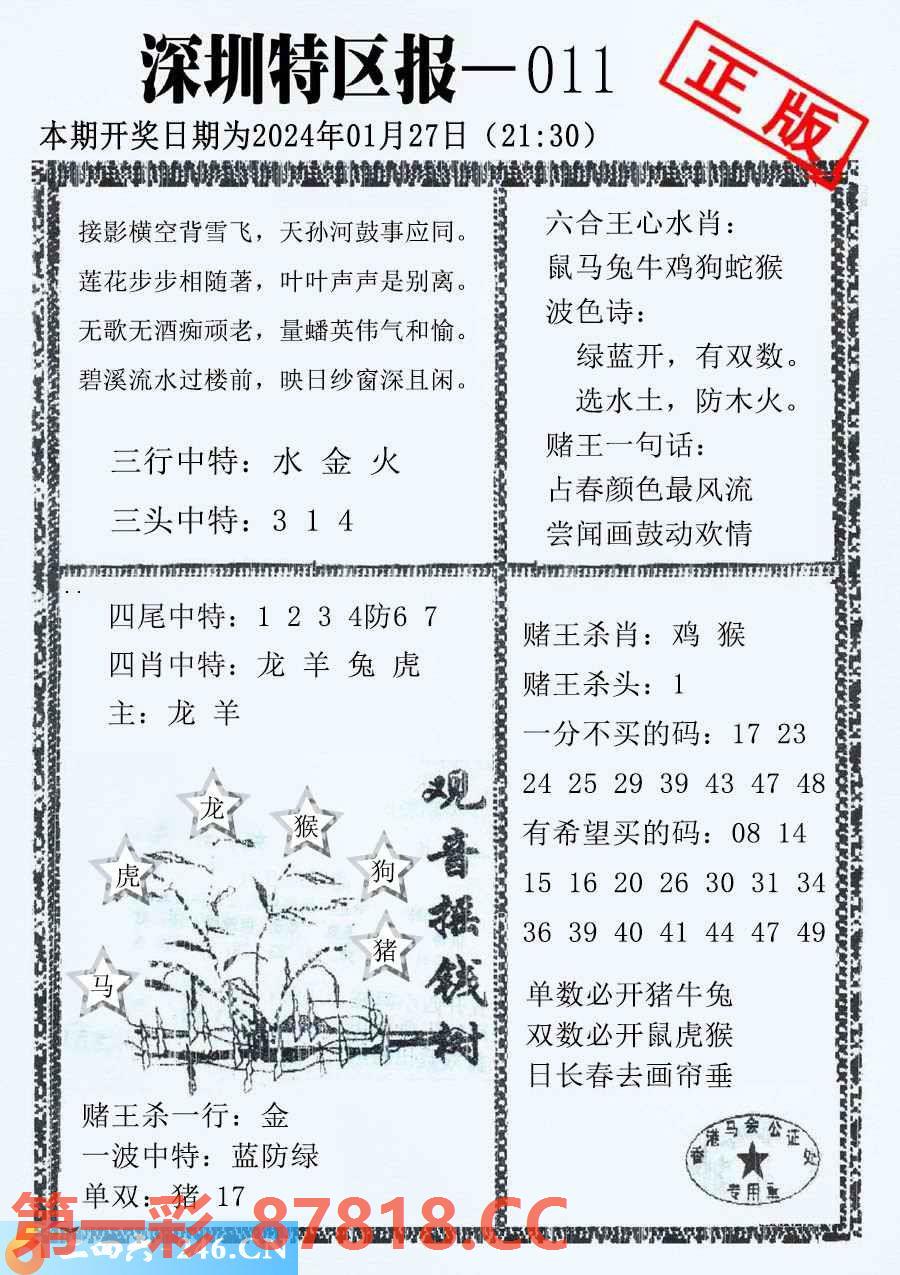 深圳特区报—011
正版
本期开奖日期为2024年01月27日（21:30）
接影横空背雪飞，天孙河鼓事应同。
莲花步步相随著，叶叶声声是别离。
无歌无酒痴顽老，量蟠英伟气和愉。
碧溪流水过楼前，映日纱窗深且闲。
三行中特：水 金 火
三头中特：3 1 4
六合王心水肖：
鼠马兔牛鸡狗蛇猴
波色诗：
绿蓝开，有双数。
选水土，防木火。
赌王一句话：
占春颜色最风流
尝闻画鼓动欢情
四尾中特：1 2 3 4防6 7
四肖中特：龙 羊 兔 虎
主：龙 羊
龙
猴
虎
狗
猪
马
观音摇钱树
赌王杀一行：金
一波中特：蓝防绿
单双：猪 17
赌王杀肖：鸡 猴
赌王杀头：1
一分不买的码：17 23
24 25 29 39 43 47 48
有希望买的码：08 14
15 16 20 26 30 31 34
36 39 40 41 44 47 49
单数必开猪牛兔
双数必开鼠虎猴
日长春去画帘垂
香港马会公证处
专用章
第一彩 87818.CC
246.CN